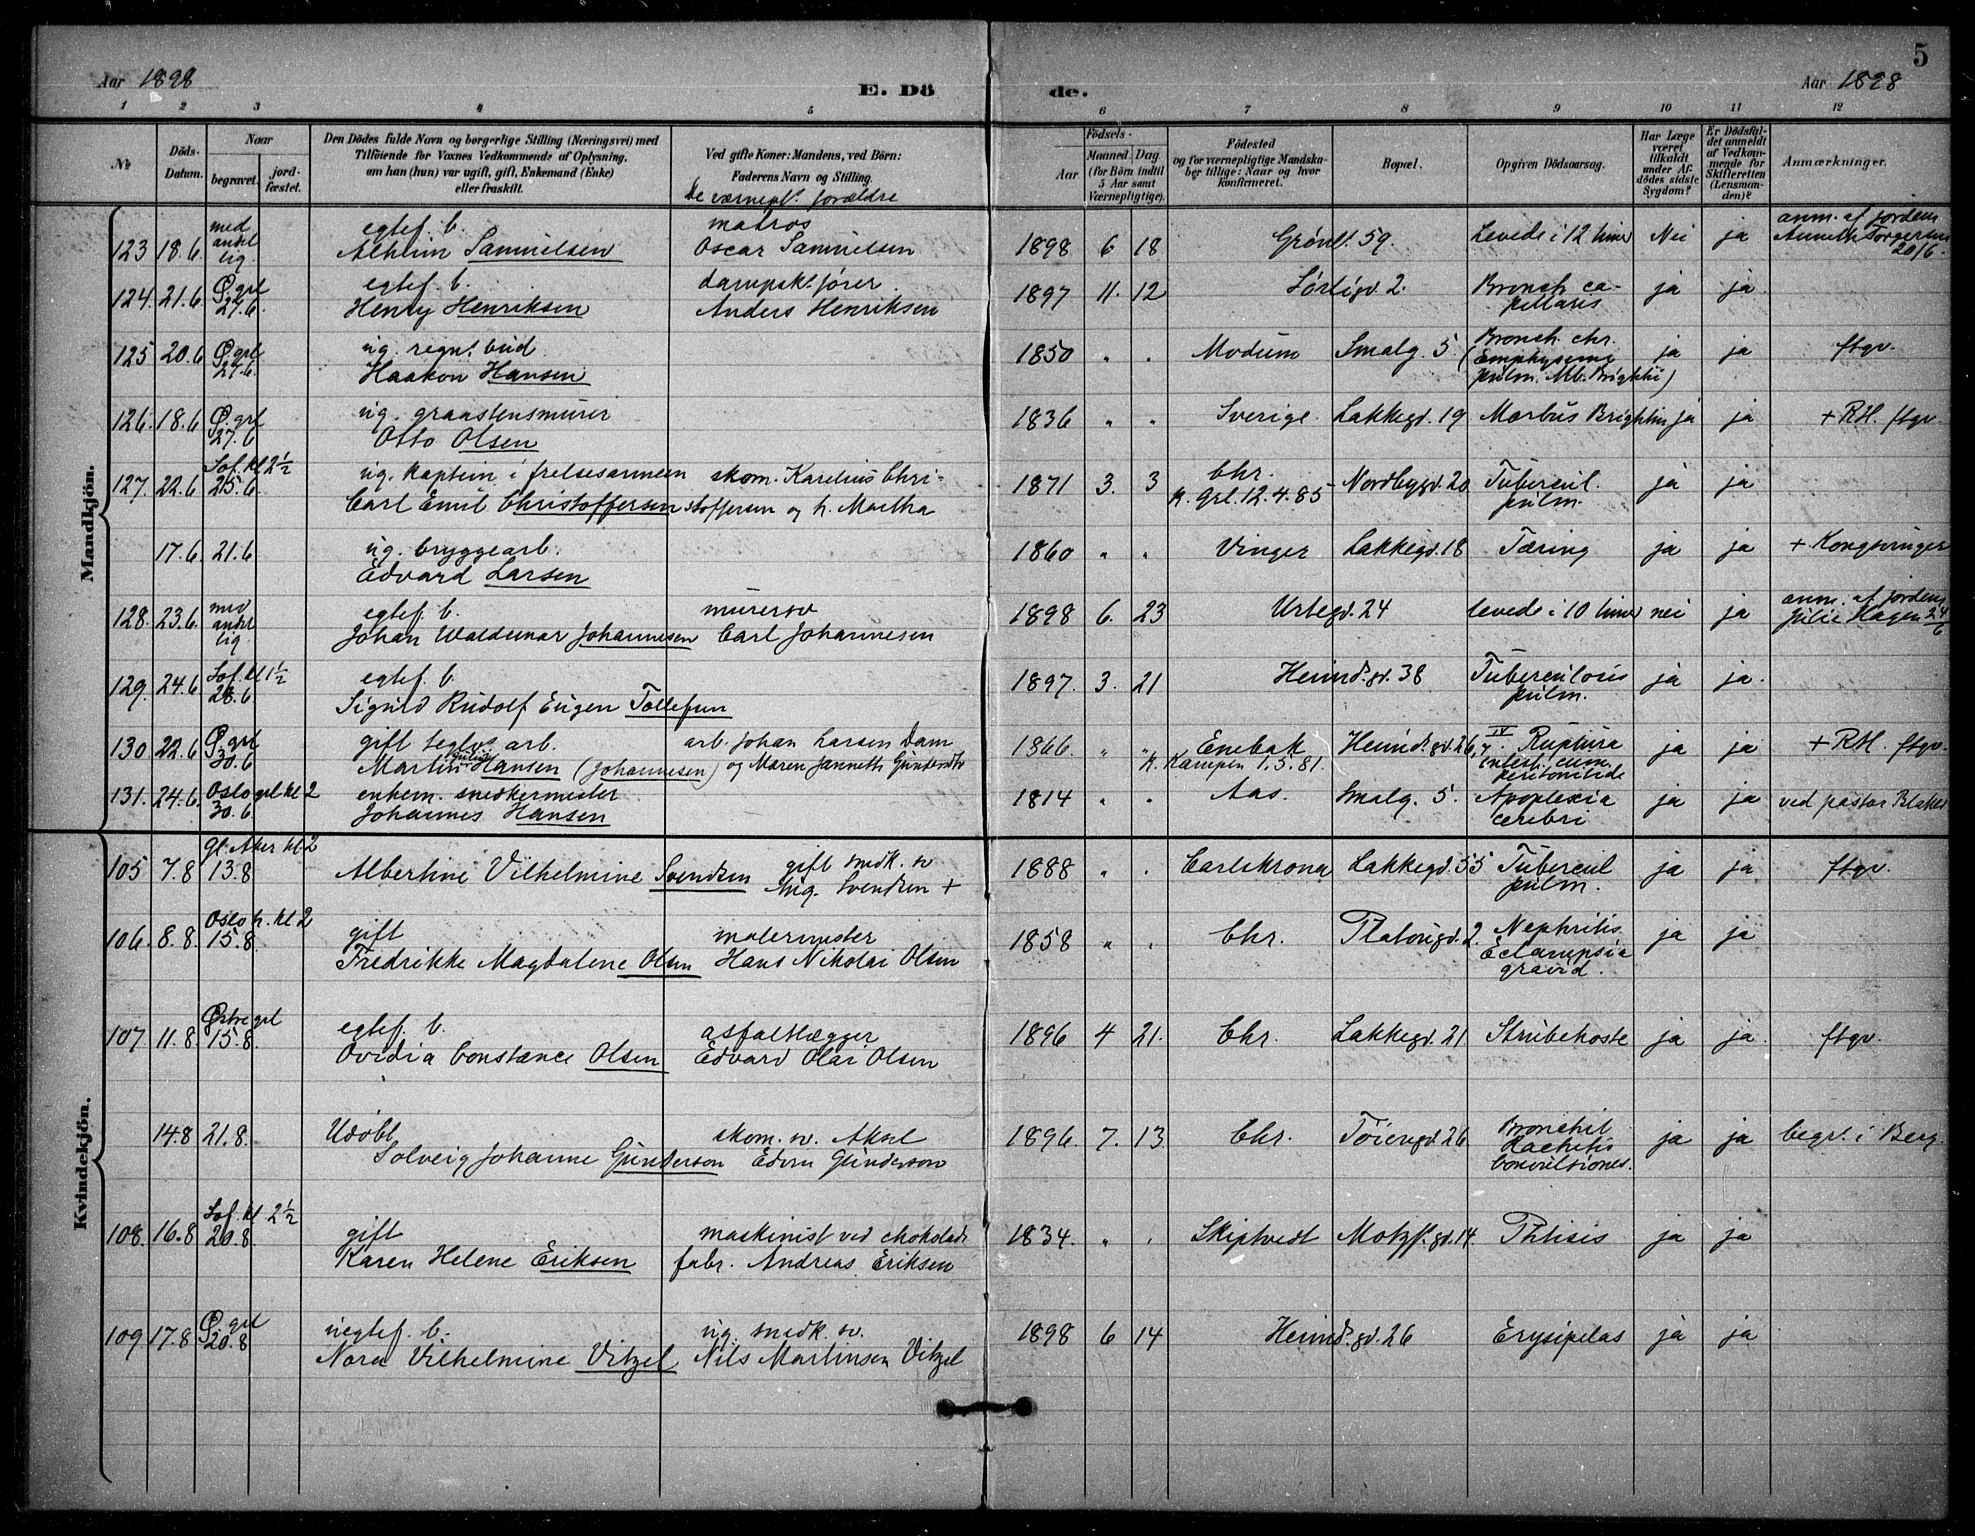 5
Aar 1898
E. Dö
de.
Aar 1898
1 2 3 4 5 6 7 8 9 10 11 12
№
Döds-Datum.
Naar
begravet.
jordfæstet.
Den Dödes fulde Navn og borgerlige Stilling (Næringsvei) med
Tilföiende for Voxnes Vedkommende af Oplysning,
om han (hun) var ugift, gift, Enkemand (Enke)
eller fraskilt.
Ved gifte Koner: Mandens, ved Börn:
Faderens Navn og Stilling.
De værnepl. forældre
Födsels-
Aar
Maaned Dag
(for Börn indtil
5 Aar samt
Værnepligtige).
Födested
og for værnepligtige Mandska-
ber tillige: Naar og hvor
konfirmeret.
Bopæl.
Opgiven Dödsaarsag.
Har Læge
været
tilkaldt
under Af-
dödes sidste
Sygdom?
Er Dödsfal-
det anmeldt
af Vedkom-
mende for
Skifteretten
(Lensman-
den)?
Anmærkninger.
Mandkjön.
med egtef. b. matros anm. af jordem.
123 18.6 andet lig. Samuelsen Oscar Samuelsen 1898 6 18 Grønl. 59. Levede i 12 timer Nei ja Anneth Torgersen 20/6.
124. 21.6 Ø. grl 27.6. egtef. b. dampsk. fører 1897 11. 12 Sørligd. 2. Bronch. ca-
Henry Henriksen Anders Henriksen pillaris ja ja
125 20.6 Ø grl 27.6. ug. regnt. bud 1850 " " Modum Smalg. 5 Bronch. chr.
Haakon Hansen (Emphysema pulm. Mb. Brightii) ja ja ftgv.
126. 18.6 Ø. grl 27.6 ug. graastensmurer 1836 " " Sverige. Lakkegd. 19 Morbus Brightii ja ja + RH. ftgv.
Otto Olsen
127. 22.6 Sof. kl 2½ 25.6 ug. kaptein i frelsesarmeen skom. Karelius Chri- 1871 3. 3 Chr. Nordbygd. 20 Tubercul. ja ja
Carl Emil Christoffersen stoffersen og h. Martha K. Grl. 12.4.85 pulm.
17.6 21.6 ug. bryggearb. 1860 " " Vinger Lakkegd. 18 Tæring ja ja + Kongsvinger
Edvard Larsen
128. 23.6. med andet lig. egtef. b. murersv 1898 6. 23 Urtegd. 24 levede i 10 timer nei ja anm. af jordem.
Johan Waldemar Johannesen Carl Johannesen Julie Hagen 24/6
129. 24.6 Sof. kl 1½ 28.6. egtef. b. 1897. 3. 21 Heimd. gd. 38 Tuberculosis ja ja.
Sigurd Rudolf Eugen Tollefsen pulm.
130. 22.6 Ø grl 30.6 gift teglv. arb. arb. Johan Larsen Dam 1866. " " Enebak Heimd. gd. 26, IV Ruptura ja ja + RH. ftgv.
Martin Julius Hansen (Johannesen) og Maren Janneth K. Kampen 1.5.81. intest. cum. peritonitide
131. 24.6. Oslo grl kl 2 30.6 enkem. snedkermester 1814 " " Aas. Smalg. 5. Apoplexia ja ja ved pastor
Johannes Hansen cerebri
Kvindekjön.
105 7.8 gl. Aker kl 2 13.8 Albertine Vilhelmine Svendsen gift snedk. sv 1888 " . Carlskrona Lakkegd. 55 Tubercul ja ja ftgv.
Aug. Svendsen + pulm.
106. 8.8. Oslo h. kl 2 15.8. gift malermester 1858 " . Chr. Platousgd. 2. Nephritis ja ja
Fredrikke Magdalene Olsen Hans Nikolai Olsen Eclampsia gravid.
107 11.8. Østre grl 15.8. egtef. b. asfaltlægger 1896 4 21. Chr. Lakkegd. 21 Strubehoste ja ja. ftgv.
Ovidia Constance Olsen Edvard Olai Olsen
14.8 21.8. Udøbt skom. sv. Aksel 1896. 7. 13 Chr. Tøiengd. 26 Bronchit ja ja begr. i Berg.
Solveig Johanne Gunderson Edvin Gunderson Rachitis Convultiones.
108. 16.8 Sof. kl 2½ 20.8. gift maskinist ved chokolade 1834. " . Skiptvedt Motzf. gd. 14. Phtisis ja ja
Karen Helene Eriksen fabr. Andreas Eriksen
109 17.8. Ø. grl 20.8 uegtef. b. ug. snedk. sv. 1898 6 14 Heimd. gd. 26 Erysipelas ja ja
Nora Vilhelmine Vitzel Nils Martinsen Vitzel